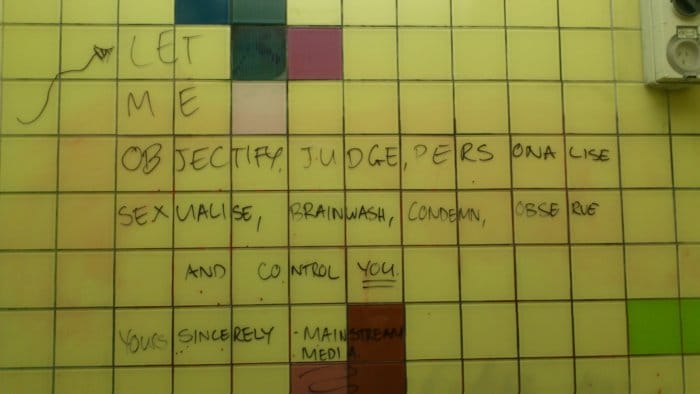 LET
ME
OBJECTIFY, JUDGE, PERSONALISE
SEXUALISE, BRAINWASH, CONDEMN, OBSERVE
AND CONTROL YOU.
YOURS SINCERELY - MAINSTREAM
MEDIA.